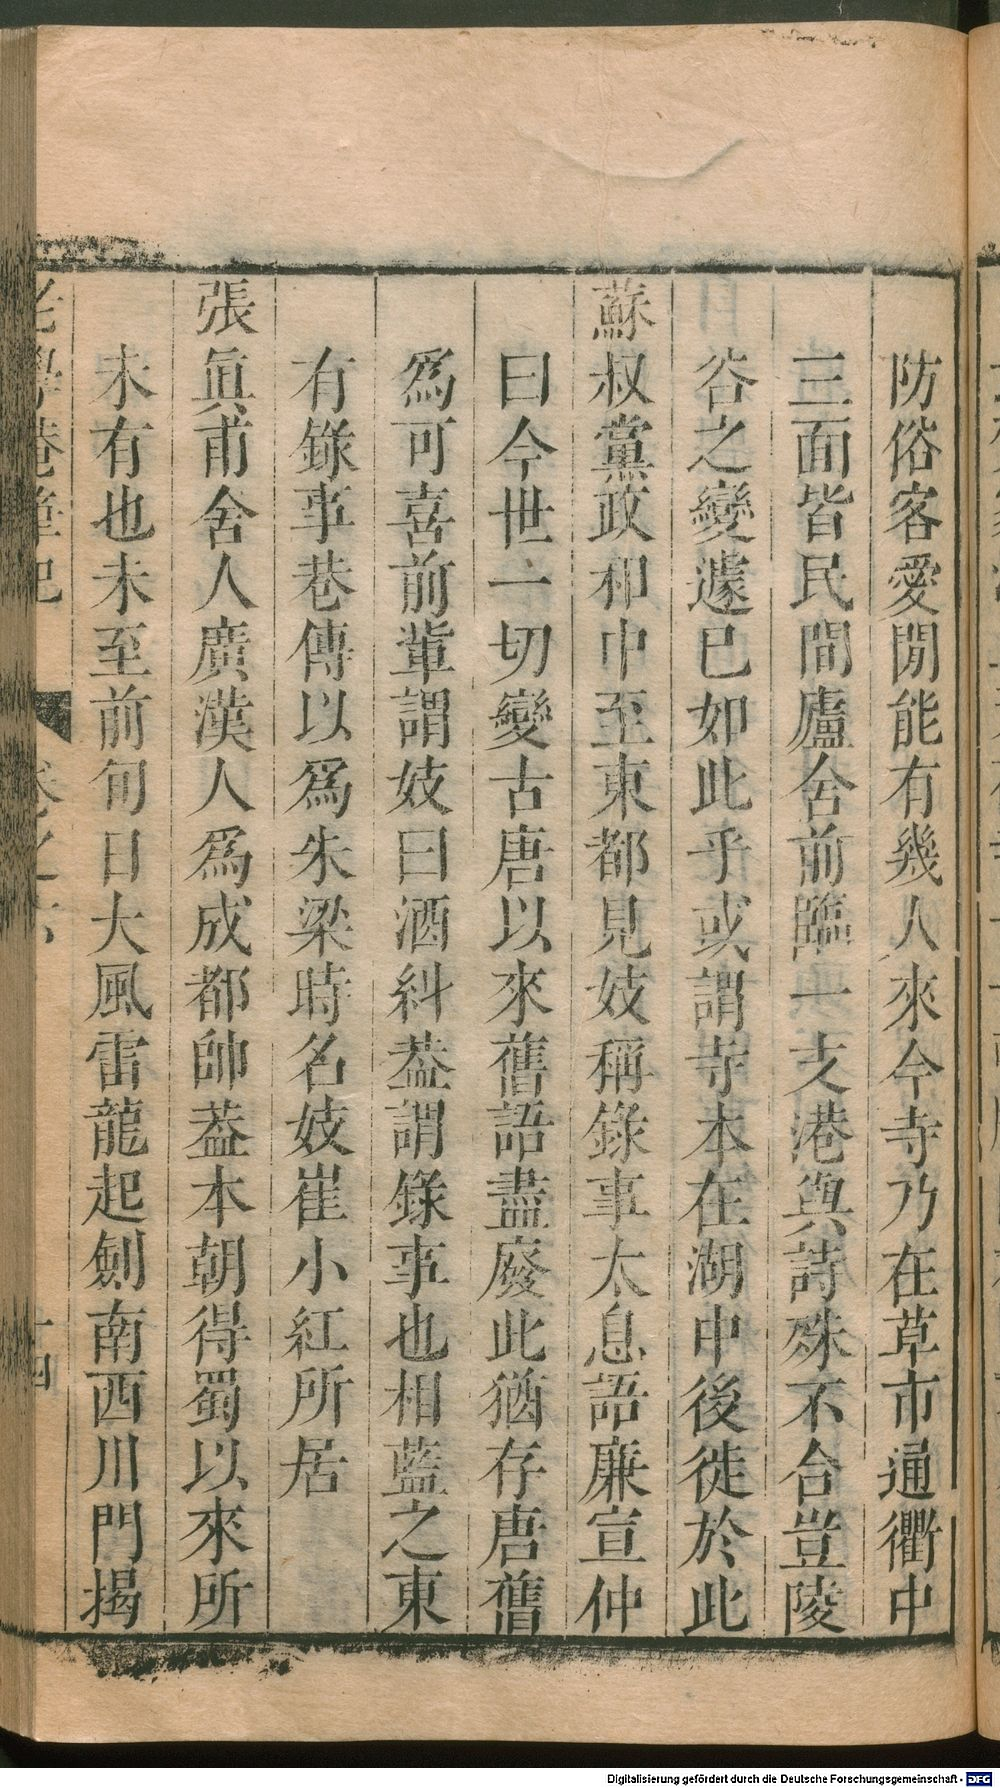 防俗客愛閒能有幾人來今寺乃在草市通衢中
三面皆民間廬舍前臨一支港與詩殊不合豈陵
谷之變遽已如此乎或謂寺本在湖中後徙於此
蘇叔黨政和中至東都見妓稱錄事太息語廉宣仲
曰今世一切變古唐以來舊語盡廢此猶存唐舊
為可喜前輩謂妓曰酒糾葢謂錄事也相藍之東
有錄事巷傳以為朱梁時名妓崔小紅所居
張眞甫舍人廣漢人為成都帥葢本朝得蜀以來所
未有也未至前旬日大風雷龍起劍南西川門揭
老學菴筆記 卷之六 十四
Digitalisierung gefördert durch die Deutsche Forschungsgemeinschaft - DFG